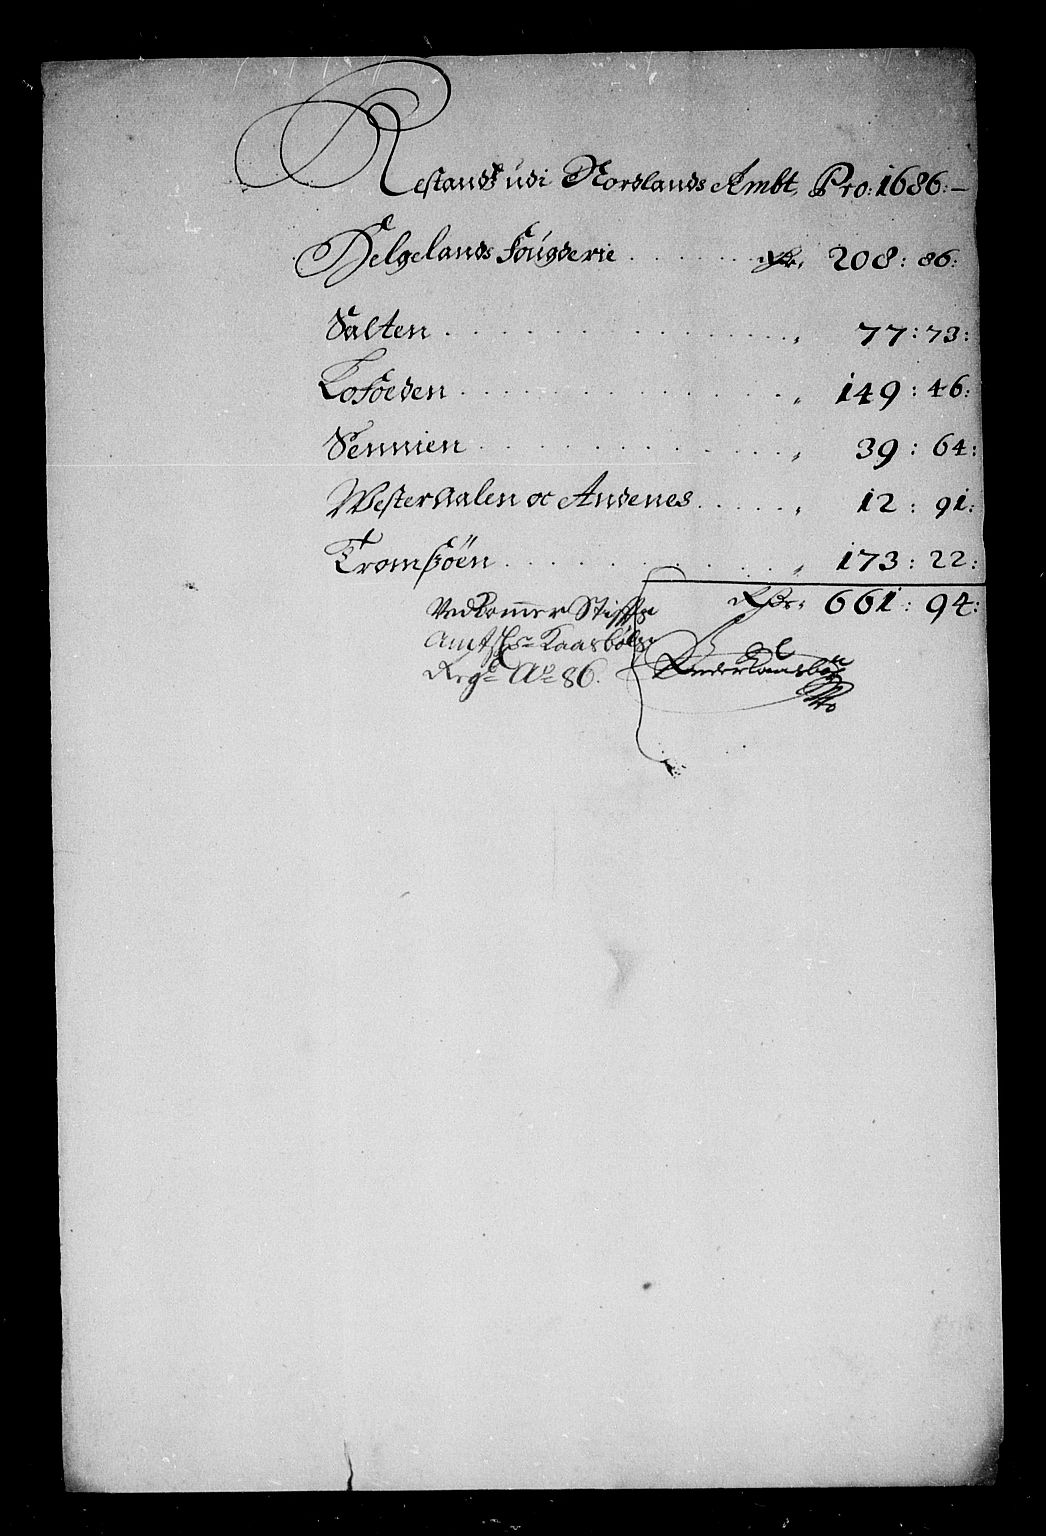 Restands udi Nordlands Ambt, Pro: 1686:—
Helgelands Fougderie . . . . . . . Rdr. 208: 86:
Salten . . . . . . . . . . . . . „ 77: 73:
Lofoeden . . . . . . . . . . . . „ 149: 46:
Sennien . . . . . . . . . . . . „ 39: 64:
Westeraalen oc Andenes . . . . . „ 12: 91:
Tromsöen . . . . . . . . . . . „ 173: 22:
Rdr. 661: 94:
Vedkommer Stiffts
Amts Kaasbøls
Regn. Ao 86.
Peder Kaasbøll